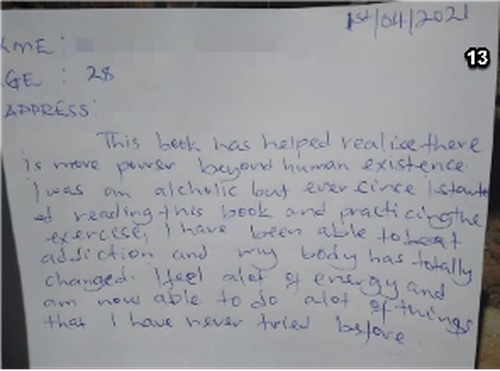 1st/04/2021
13
AME :
GE : 28
ADDRESS:
This book has helped realise there
is more power beyond human existence
I was an alcholic but ever since I start
ed reading this book and practicing the
exercise, I have been able to beat
addiction and my body has totally
changed. I feel alot of energy and
am now able to do alot of things
that I have never tried before.